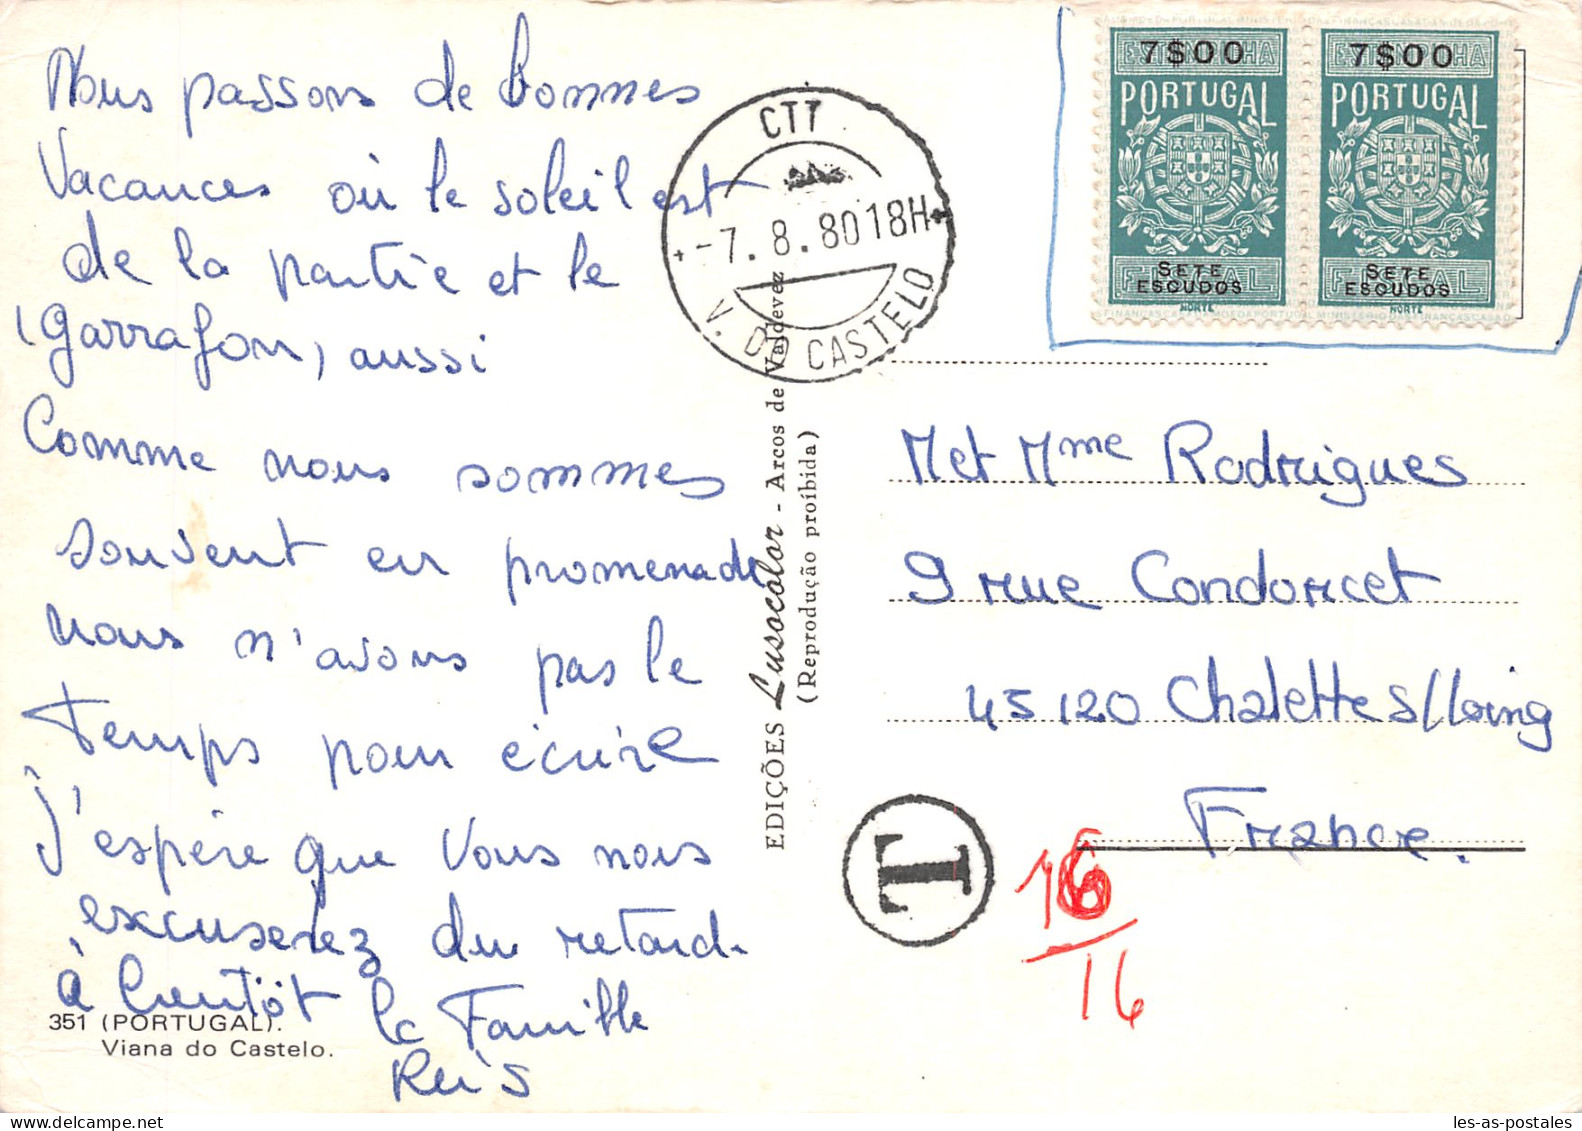 Nous passons de bonnes
Vacances où le soleil est
de la partie et le
(garrafon) aussi
Comme nous sommes
souvent en promenade
nous n'avons pas le
Temps pour écrire
j'espère que Vous nous
excuserez du retard.
à bientôt la Famille
Reis
351 (PORTUGAL).
Viana do Castelo.
EDIÇÕES Lusocolor - Arcos de Valdevez
(Reprodução proíbida)
CTT
-7.8.80 18H
V. DO CASTELO
7$00
PORTUGAL
SETE
ESCUDOS
NORTE
7$00
PORTUGAL
SETE
ESCUDOS
NORTE
M et Mme Rodrigues
9 rue Condorcet
45120 Chalette s/loing
France.
T
16
les-as-postales